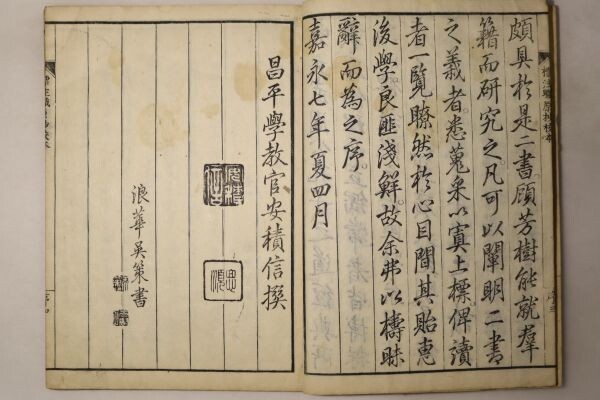 頗具於是二書顧芳樹能就羣
籍而研究之凡可以闡明二書
之義者悉蒐采以寘上標俾讀
者一覽瞭然於心目間其貽惠
後學良匪淺鮮故余弗以檮昧
辭而為之序
嘉永七年夏四月
昌平學教官安積信撰
浪華吳策書